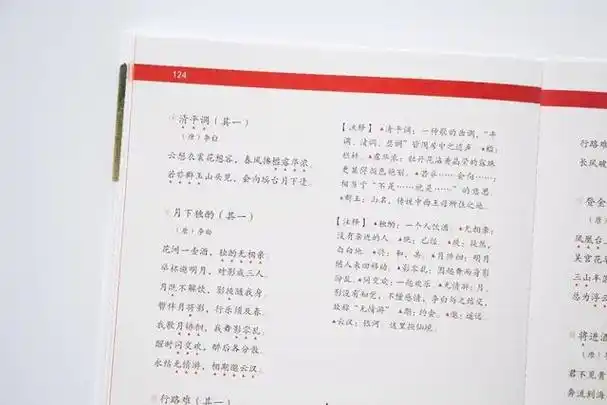 124
清平调（其一）
（唐）李白
云想衣裳花想容，春风拂槛露华浓。
若非群玉山头见，会向瑶台月下逢。
月下独酌（其一）
（唐）李白
花间一壶酒，独酌无相亲。
举杯邀明月，对影成三人。
月既不解饮，影徒随我身。
暂伴月将影，行乐须及春。
我歌月徘徊，我舞影零乱。
醒时同交欢，醉后各分散。
永结无情游，相期邈云汉。
行路难（其一）
【注释】清平调：一种歌的曲调，“平
调、清调、瑟调”皆周房中之遗声 槛：
栏杆。露华浓：牡丹花沾着晶莹的露珠
更显得颜色艳丽。若非……会向……：
相当于“不是……就是……”的意思。
群玉：山名，传说中西王母所住之地。
【注释】独酌：一个人饮酒 无相亲：
没有亲近的人 既：已经 徒：徒然，
白白地 将：和，共 月徘徊：明月
随人来回移动 影零乱：因起舞而身影
纷乱 同交欢：一起欢乐 无情游：月、
影没有知觉，不懂感情，李白与之结交，
故称“无情游” 期：约会。邈：遥远。
云汉：银河 这里指仙境。
行路难
长风破
登金
（唐）
凤凰台
吴宫花
三山半
总为浮
将进酒
（唐）
君不见黄
奔流到海